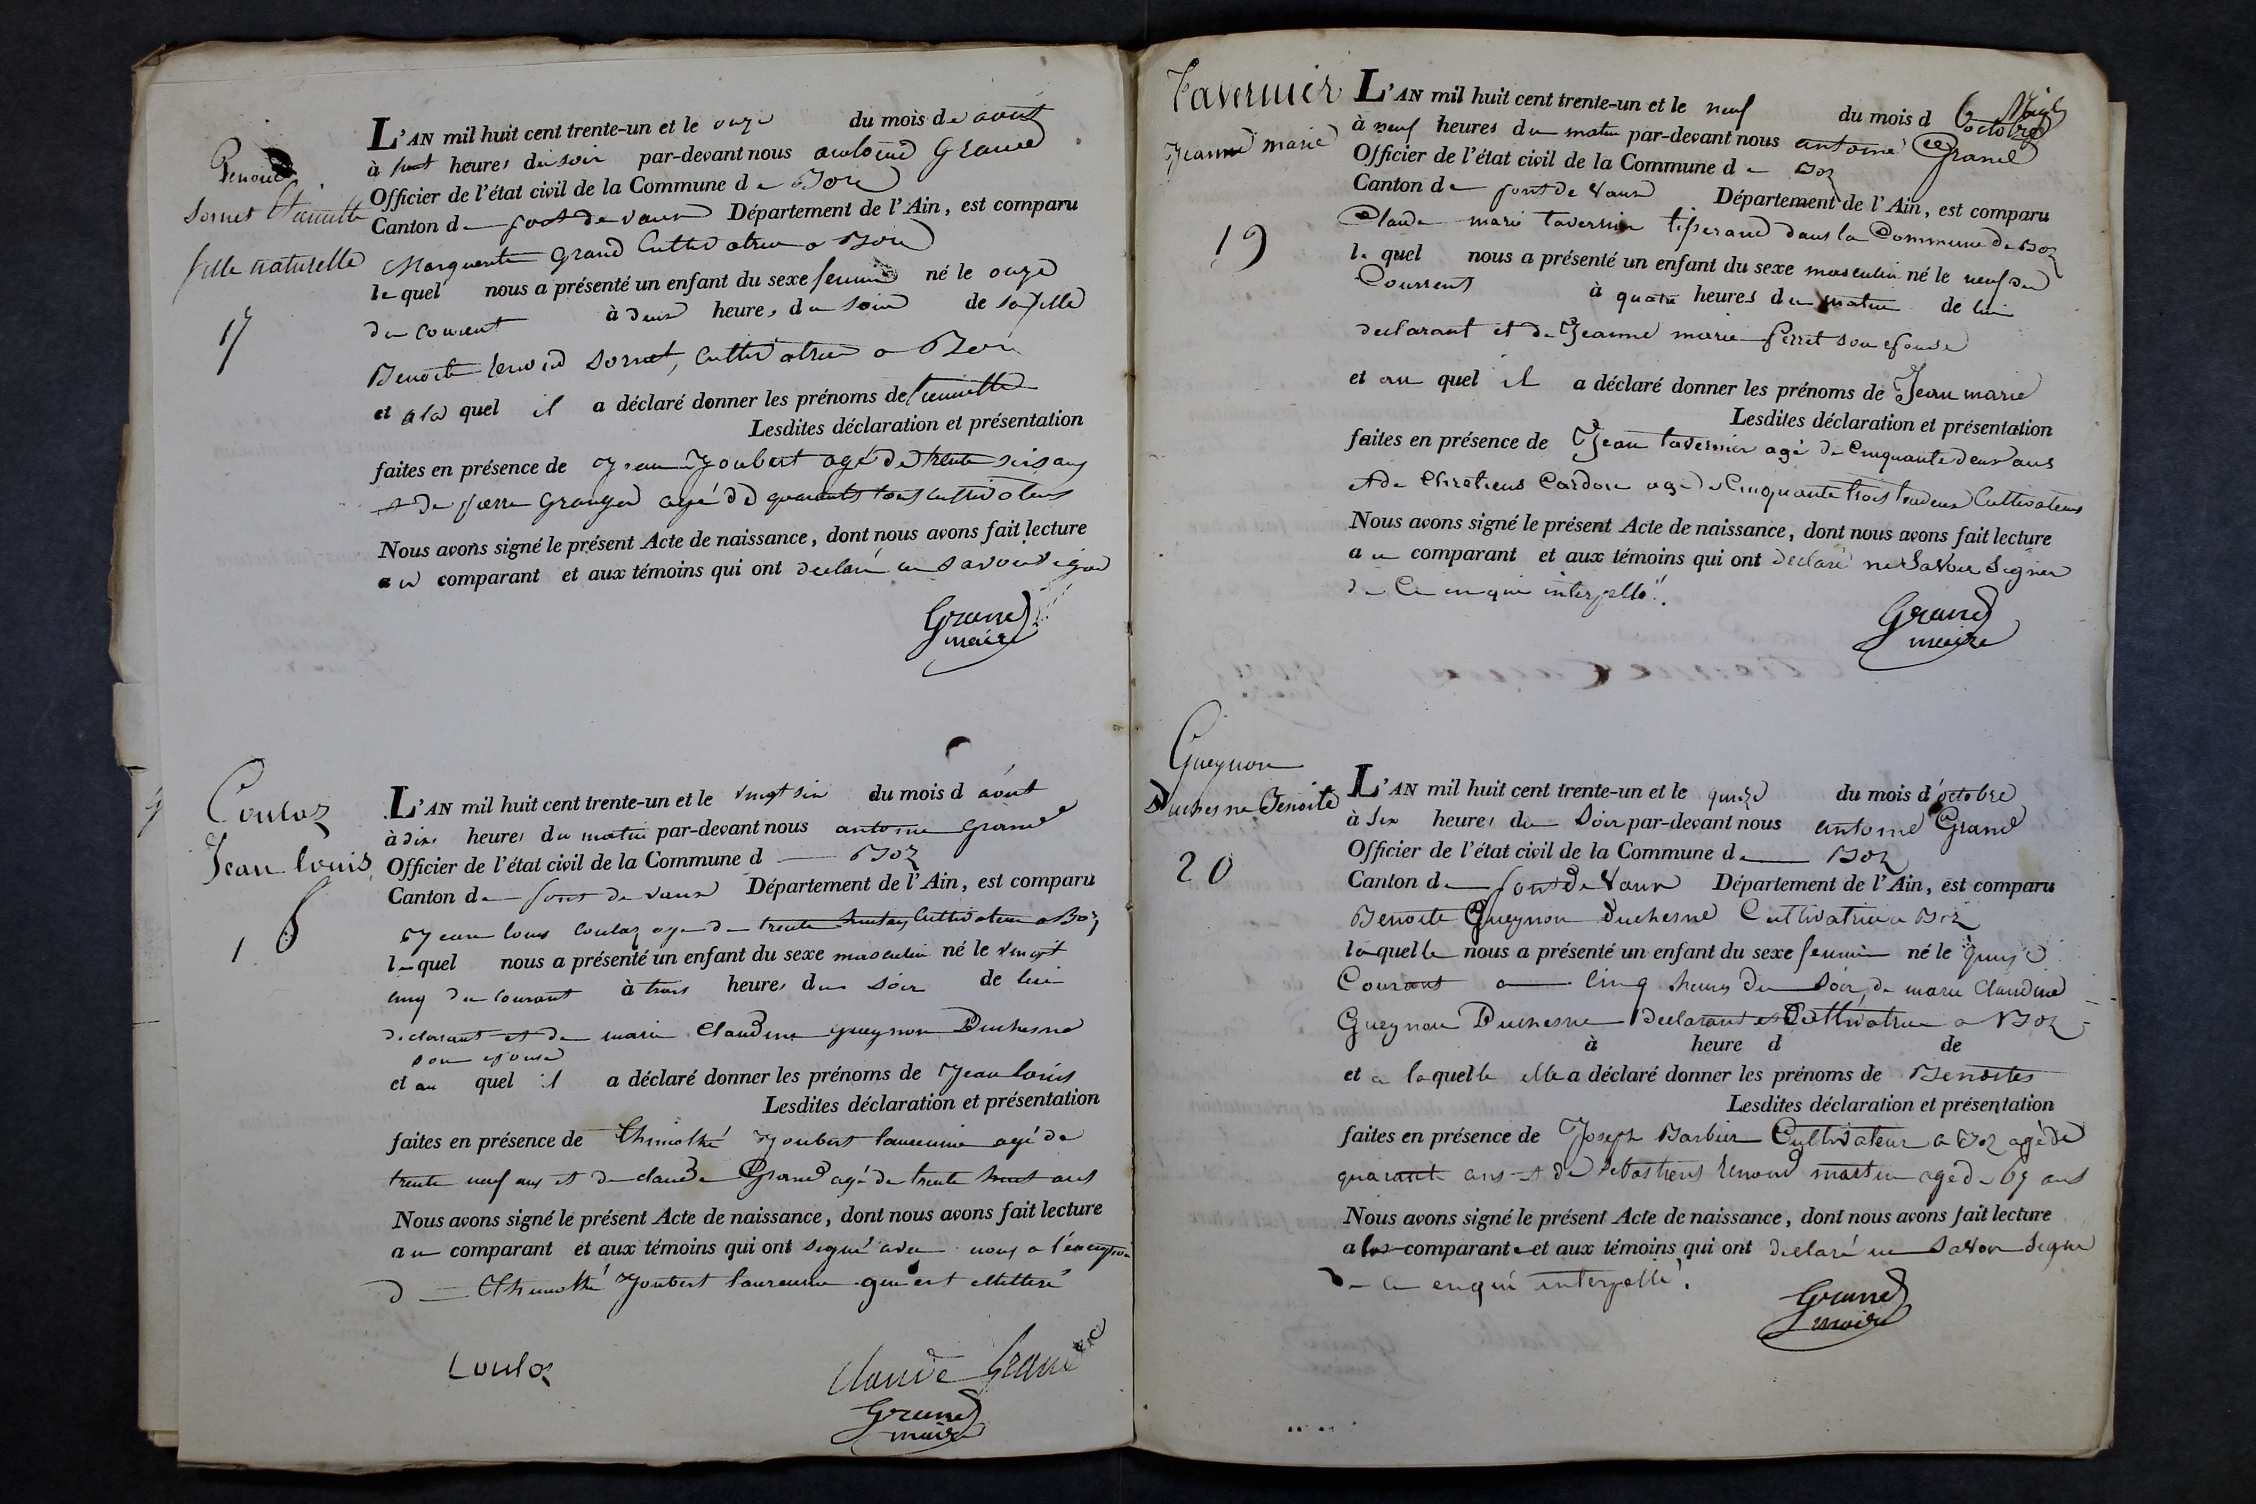 Renoud
Sornet
fille naturelle
17
L'AN mil huit cent trente-un et le onze du mois de août
à heures du soir par-devant nous antoine Grand
Officier de l'état civil de la Commune de Boz
Canton de pont de vaux Département de l'Ain, est comparu
Marguerite Grand Cultivatrice a Boz
le quel nous a présenté un enfant du sexe feminin né le onze
du courent à deux heures du soir de sa fille
Benoite renoud Sornet, Cultivatrice a Boz
et a la quel il a déclaré donner les prénoms de
Lesdites déclaration et présentation
faites en présence de Jean Joubert agé de trente six ans
et de pierre Granger agé de quarante trois cultivateurs
Nous avons signé le présent Acte de naissance, dont nous avons fait lecture
au comparant et aux témoins qui ont declaré ne savoir signé
Grand
maire
Couloz
Jean louis
18
L'AN mil huit cent trente-un et le vingt six du mois d août
à dix heures du matin par-devant nous antoine Grand
Officier de l'état civil de la Commune d Boz
Canton de pont de vaux Département de l'Ain, est comparu
Jean louis Couloz age de trente huit ans Cultivateur a Boz
le quel nous a présenté un enfant du sexe masculin né le vingt
cinq du courant à trois heures du soir de lui
declarant et de marie Claudine gueynon Duchesne
son epouse
et au quel il a déclaré donner les prénoms de Jean louis
Lesdites déclaration et présentation
faites en présence de Thimothé Joubert agé de
trente neuf ans et de claude Grand agé de trente huit ans
Nous avons signé le présent Acte de naissance, dont nous avons fait lecture
au comparant et aux témoins qui ont signé avec nous a l'exception
de Thimothé Joubert qui est illitteré
Couloz
Claude Grand
Grand
maire
Tavernier
Jeanne marie
19
L'AN mil huit cent trente-un et le neuf du mois d octobre
à neuf heures du matin par-devant nous antoine Grand
Officier de l'état civil de la Commune de Boz
Canton de pont de Vaux Département de l'Ain, est comparu
Claude marie tavernier tisserand dans la Commune de Boz
le quel nous a présenté un enfant du sexe masculin né le neuf du
Courrent à quatre heures du matin de lui
declarant et de Jeanne marie perret son epouse
et au quel il a déclaré donner les prénoms de Jean marie
Lesdites déclaration et présentation
faites en présence de Jean tavernier agé de Cinquante deux ans
et de Chretiens Cardon agé de Cinquante trois tous deux Cultivateurs
Nous avons signé le présent Acte de naissance, dont nous avons fait lecture
au comparant et aux témoins qui ont déclaré ne Savoir Signer
de Ce enquis interpellé.
Grand
maire
Gueynon
Duchesne Benoite
20
L'AN mil huit cent trente-un et le quinze du mois d'octobre
à six heures du Soir par-devant nous antoine Grand
Officier de l'état civil de la Commune de Boz
Canton de pont de Vaux Département de l'Ain, est comparu
Benoite Gueynon Duchesne Cultivatrice a Boz
laquelle nous a présenté un enfant du sexe feminin né le quinze
Courant a Cinq heures du Soir, de marie Claudine
Gueynon Duchesne Declarant et Cultivatrice a Boz
à heure d de
et a laquelle elle a déclaré donner les prénoms de Benoites
Lesdites déclaration et présentation
faites en présence de Joseph Barbier Cultivateur a Boz agé de
quarante ans et de sebastiens renoud martin agé de 69 ans
Nous avons signé le présent Acte de naissance, dont nous avons fait lecture
a las comparante et aux témoins qui ont declaré ne Savoir Signé
de Ce enqui interpellé.
Grand
maire